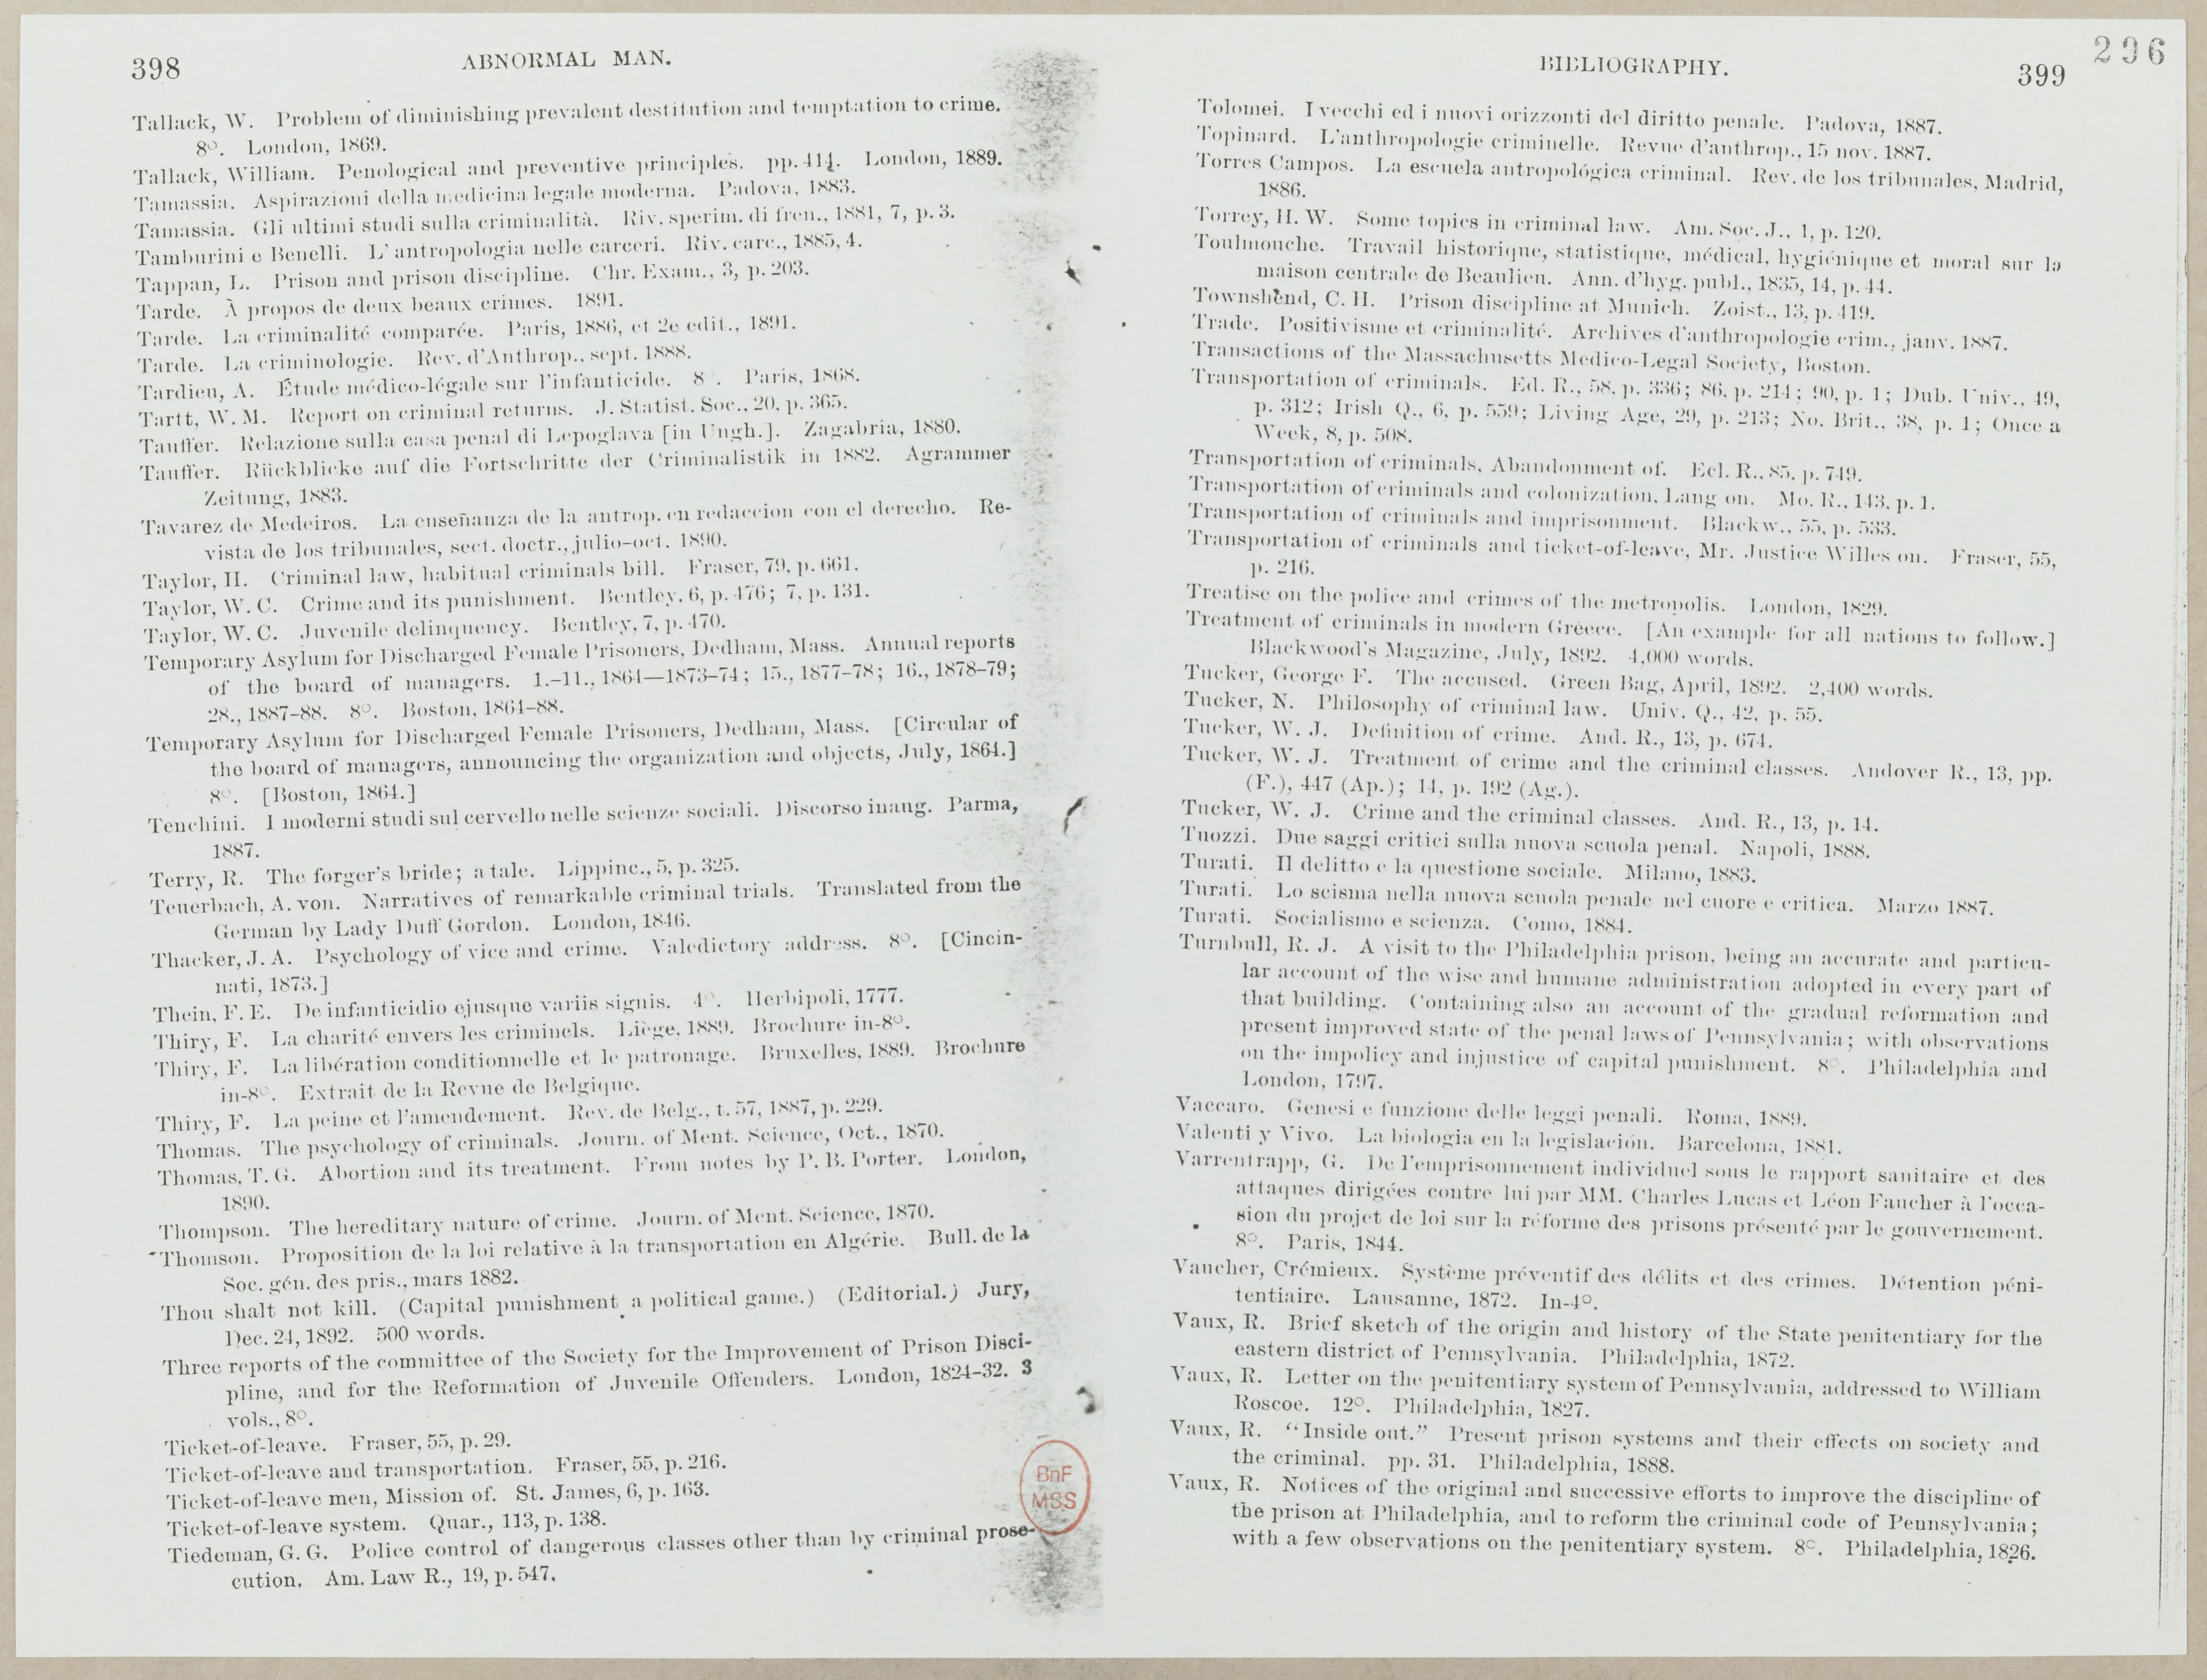 398
ABNORMAL MAN.
Tallack, W. Problem of diminishing prevalent destitution and temptation to crime.
8°. London, 1869.
Tallack, William. Penological and preventive principles. pp. 414. London, 1889.
Tamassia. Aspirazioni della medicina legale moderna. Padova, 1883.
Tamassia. Gli ultimi studi sulla criminalità. Riv. sperim. di fren., 1881, 7, p. 3.
Tamburini e Benelli. L'antropologia nelle carceri. Riv. carc., 1885, 4.
Tappan, L. Prison and prison discipline. Chr. Exam., 3, p. 203.
Tarde. À propos de deux beaux crimes. 1891.
Tarde. La criminalité comparée. Paris, 1886, et 2e edit., 1891.
Tarde. La criminologie. Rev. d'Anthrop., sept. 1888.
Tardieu, A. Étude médico-légale sur l'infanticide. 8°. Paris, 1868.
Tartt, W. M. Report on criminal returns. J. Statist. Soc., 20, p. 365.
Tauffer. Relazione sulla casa penal di Lepoglava [in Ungh.]. Zagabria, 1880.
Tauffer. Rückblicke auf die Fortschritte der Criminalistik in 1882. Agrammer
Zeitung, 1883.
Tavarez de Medeiros. La enseñanza de la antrop. en redaccion con el derecho. Re-
vista de los tribunales, sect. doctr., julio-oct. 1890.
Taylor, H. Criminal law, habitual criminals bill. Fraser, 79, p. 661.
Taylor, W. C. Crime and its punishment. Bentley, 6, p. 476; 7, p. 131.
Taylor, W. C. Juvenile delinquency. Bentley, 7, p. 470.
Temporary Asylum for Discharged Female Prisoners, Dedham, Mass. Annual reports
of the board of managers. 1.-11., 1864—1873-74; 15., 1877-78; 16., 1878-79;
28., 1887-88. 8°. Boston, 1864-88.
Temporary Asylum for Discharged Female Prisoners, Dedham, Mass. [Circular of
the board of managers, announcing the organization and objects, July, 1864.]
8°. [Boston, 1864.]
Tenchini. I moderni studi sul cervello nelle scienze sociali. Discorso inaug. Parma,
1887.
Terry, R. The forger's bride; a tale. Lippinc., 5, p. 325.
Teuerbach, A. von. Narratives of remarkable criminal trials. Translated from the
German by Lady Duff Gordon. London, 1846.
Thacker, J. A. Psychology of vice and crime. Valedictory address. 8°. [Cincin-
nati, 1873.]
Thein, F. E. De infanticidio ejusque variis signis. 4°. Herbipoli, 1777.
Thiry, F. La charité envers les criminels. Liège, 1889. Brochure in-8°.
Thiry, F. La libération conditionnelle et le patronage. Bruxelles, 1889. Brochure
in-8°. Extrait de la Revue de Belgique.
Thiry, F. La peine et l'amendement. Rev. de Belg., t. 57, 1887, p. 229.
Thomas. The psychology of criminals. Journ. of Ment. Science, Oct., 1870.
Thomas, T. G. Abortion and its treatment. From notes by P. B. Porter. London,
1890.
Thompson. The hereditary nature of crime. Journ. of Ment. Science, 1870.
Thomson. Proposition de la loi relative à la transportation en Algérie. Bull. de la
Soc. gén. des pris., mars 1882.
Thou shalt not kill. (Capital punishment a political game.) (Editorial.) Jury,
Dec. 24, 1892. 500 words.
Three reports of the committee of the Society for the Improvement of Prison Disci-
pline, and for the Reformation of Juvenile Offenders. London, 1824-32. 3
vols., 8°.
Ticket-of-leave. Fraser, 55, p. 29.
Ticket-of-leave and transportation. Fraser, 55, p. 216.
Ticket-of-leave men, Mission of. St. James, 6, p. 163.
Ticket-of-leave system. Quar., 113, p. 138.
Tiedeman, G. G. Police control of dangerous classes other than by criminal prose-
cution. Am. Law R., 19, p. 547.
BnF
MSS
BIBLIOGRAPHY.
399
296
Tolomei. I vecchi ed i nuovi orizzonti del diritto penale. Padova, 1887.
Topinard. L'anthropologie criminelle. Revue d'anthrop., 15 nov. 1887.
Torres Campos. La escuela antropológica criminal. Rev. de los tribunales, Madrid,
1886.
Torrey, H. W. Some topics in criminal law. Am. Soc. J., 1, p. 120.
Toulmouche. Travail historique, statistique, médical, hygiénique et moral sur la
maison centrale de Beaulieu. Ann. d'hyg. publ., 1835, 14, p. 44.
Townshend, C. H. Prison discipline at Munich. Zoist., 13, p. 419.
Trade. Positivisme et criminalité. Archives d'anthropologie crim., janv. 1887.
Transactions of the Massachusetts Medico-Legal Society, Boston.
Transportation of criminals. Ed. R., 58, p. 336; 86, p. 214; 90, p. 1; Dub. Univ., 49,
p. 312; Irish Q., 6, p. 559; Living Age, 29, p. 213; No. Brit., 38, p. 1; Once a
Week, 8, p. 508.
Transportation of criminals, Abandonment of. Ecl. R., 85, p. 749.
Transportation of criminals and colonization, Lang on. Mo. R., 143, p. 1.
Transportation of criminals and imprisonment. Blackw., 55, p. 533.
Transportation of criminals and ticket-of-leave, Mr. Justice Willes on. Fraser, 55,
p. 216.
Treatise on the police and crimes of the metropolis. London, 1829.
Treatment of criminals in modern Greece. [An example for all nations to follow.]
Blackwood's Magazine, July, 1892. 4,000 words.
Tucker, George F. The accused. Green Bag, April, 1892. 2,400 words.
Tucker, N. Philosophy of criminal law. Univ. Q., 42, p. 55.
Tucker, W. J. Definition of crime. And. R., 13, p. 674.
Tucker, W. J. Treatment of crime and the criminal classes. Andover R., 13, pp.
(F.), 447 (Ap.); 14, p. 192 (Ag.).
Tucker, W. J. Crime and the criminal classes. And. R., 13, p. 14.
Tuozzi. Due saggi critici sulla nuova scuola penal. Napoli, 1888.
Turati. Il delitto e la questione sociale. Milano, 1883.
Turati. Lo scisma nella nuova scuola penale nel cuore e critica. Marzo 1887.
Turati. Socialismo e scienza. Como, 1884.
Turnbull, R. J. A visit to the Philadelphia prison, being an accurate and particu-
lar account of the wise and humane administration adopted in every part of
that building. Containing also an account of the gradual reformation and
present improved state of the penal laws of Pennsylvania; with observations
on the impolicy and injustice of capital punishment. 8°. Philadelphia and
London, 1797.
Vaccaro. Genesi e funzione delle leggi penali. Roma, 1889.
Valenti y Vivo. La biologia en la legislación. Barcelona, 1881.
Varrentrapp, G. De l'emprisonnement individuel sous le rapport sanitaire et des
attaques dirigées contre lui par MM. Charles Lucas et Léon Faucher à l'occa-
sion du projet de loi sur la réforme des prisons présenté par le gouvernement.
8°. Paris, 1844.
Vaucher, Crémieux. Système préventif des délits et des crimes. Détention péni-
tentiaire. Lausanne, 1872. In-4°.
Vaux, R. Brief sketch of the origin and history of the State penitentiary for the
eastern district of Pennsylvania. Philadelphia, 1872.
Vaux, R. Letter on the penitentiary system of Pennsylvania, addressed to William
Roscoe. 12°. Philadelphia, 1827.
Vaux, R. "Inside out." Present prison systems and their effects on society and
the criminal. pp. 31. Philadelphia, 1888.
Vaux, R. Notices of the original and successive efforts to improve the discipline of
the prison at Philadelphia, and to reform the criminal code of Pennsylvania;
with a few observations on the penitentiary system. 8°. Philadelphia, 1826.